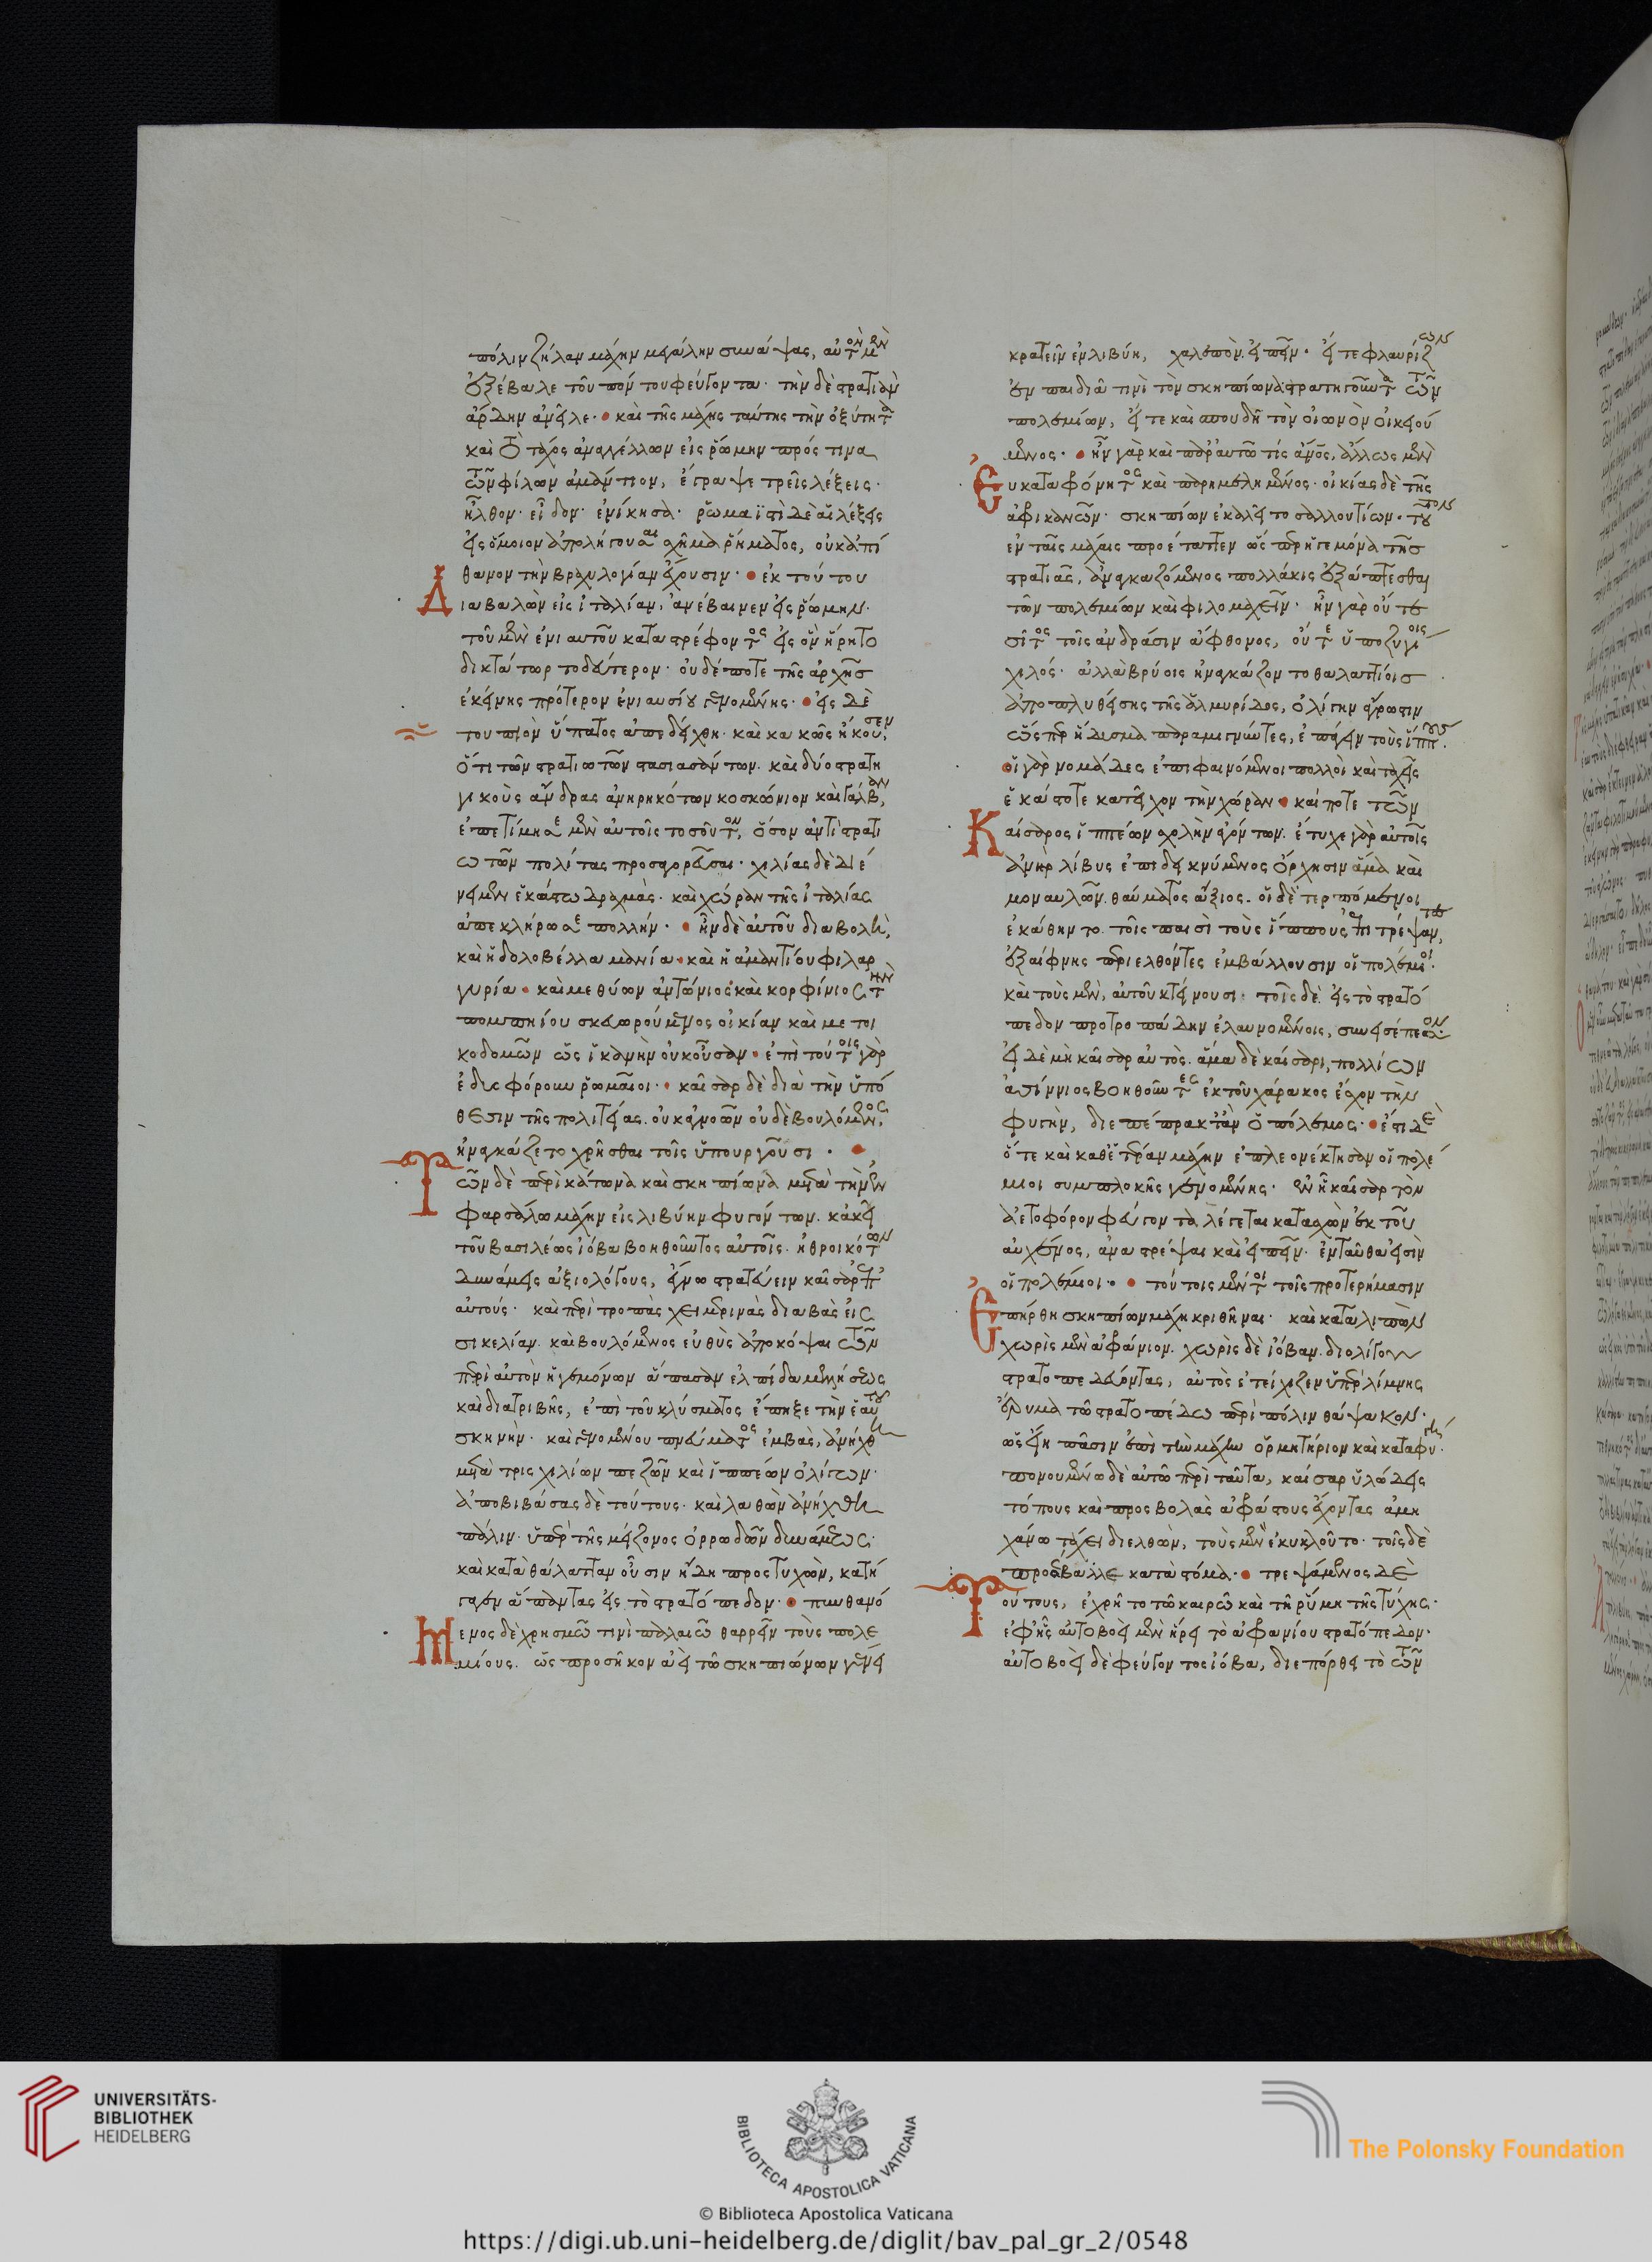 πόλιν ζῆλαν μάχην μεγάλην συνάψας, αὐτὸν μὲν
ἐξέβαλε τοῦ πόντου φεύγοντα· τὴν δὲ στρατιὰν
ἄρδην ἀνεῖλε· καὶ τῆς μάχης ταύτης τὴν ὀξύτητα
καὶ τὸ τάχος ἀναγγέλλων εἰς ῥώμην πρός τινα
τῶν φίλων ἀμάντιον, ἔγραψε τρεῖς λέξεις·
ἦλθον· εἶδον· ἐνίκησα· ῥωμαϊστὶ δὲ αἱ λέξεις
εἰς ὅμοιον ἀπολήγουσαι σχῆμα ῥήματος, οὐκ ἀπί
θανον τὴν βραχυλογίαν ἔχουσιν· ἐκ τούτου
Διαβαλὼν εἰς ἰταλίαν, ἀνέβαινεν εἰς ῥώμην·
τοῦ μὲν ἐνιαυτοῦ καταστρέφοντος εἰς ὃν ᾕρητο
δικτάτωρ τοδεύτερον· οὐδέποτε τῆς ἀρχῆς
ἐκείνης πρότερον ἐνιαυσίου γενομένης· εἰς δὲ
τουπιὸν ὕπατος ἀπεδείχθη· καὶ κακῶς ἤκουσεν,
ὅτι τῶν στρατιωτῶν στασιασάντων· καὶ δύο στρατη
γικοὺς ἄνδρας ἀνῃρηκότων κοσκώνιον καὶ γάλβαν,
ἐπετίμησε μὲν αὐτοῖς τοσοῦτον, ὅσον ἀντὶ στρατι
ωτῶν πολίτας προσαγορεῦσαι· χιλίας δὲ διέ
νειμεν ἑκάστῳ δραχμὰς· καὶ χώραν τῆς ἰταλίας
ἀπεκλήρωσε πολλήν· ἦν δὲ αὐτοῦ διαβολὴ,
καὶ ἡ δολοβέλλα μανία· καὶ ἡ ἀμαντίου φιλαρ
γυρία· καὶ μεθύων ἀντώνιος· καὶ κορφίνιος τὴν
πομπηίου σκευωρούμενος οἰκίαν καὶ μετοι
κοδομῶν ὡς ἱκανὴν οὐκ οὖσαν· ἐπὶ τούτοις γὰρ
ἐδυσφόρουν ῥωμαῖοι· καῖσαρ δὲ διὰ τὴν ὑπό
θεσιν τῆς πολιτείας· οὐκ ἀγνοῶν οὐδὲ βουλόμενος,
ἠναγκάζετο χρῆσθαι τοῖς ὑπουργοῦσι·
Τῶν δὲ περὶ κάτωνα καὶ σκηπίωνα μετὰ τὴν ἐν
φαρσάλῳ μάχην εἰς λιβύην φυγόντων· κἀκεῖ
τοῦ βασιλέως ἰόβα βοηθοῦντος αὐτοῖς· ἠθροικότων
δυνάμεις ἀξιολόγους, ἔγνω στρατεύειν καῖσαρ ἐπ'
αὐτούς· καὶ περὶ τροπὰς χειμερινὰς διαβὰς εἰς
σικελίαν· καὶ βουλόμενος εὐθὺς ἀποκόψαι τῶν
περὶ αὐτὸν ἡγεμόνων ἅπασαν ἐλπίδα μελλήσεως
καὶ διατριβῆς, ἐπὶ τοῦ κλύσματος ἔπηξε τὴν ἑαυτοῦ
σκηνήν· καὶ γενομένου πνεύματος ἐμβὰς, ἀνήχθη
μετὰ τρισχιλίων πεζῶν καὶ ἱππέων ὀλίγων·
ἀποβιβάσας δὲ τούτους· καὶ λαθὼν ἀνήχθη
πάλιν· ὑπὲρ τῆς μείζονος ὀρρωδῶν δυνάμεως·
καὶ κατὰ θάλατταν οὖσιν ἤδη προστυχὼν, κατή
γαγεν ἅπαντας εἰς τὸ στρατόπεδον· πυνθανό
Μενος δὲ χρησμῷ τινὶ παλαιῷ θαρρεῖν τοὺς πολε
μίους· ὡς προσῆκον ἀεὶ τῷ σκηπιώνων γένει
κρατεῖν ἐν λιβύῃ, χαλεπὸν εἰπεῖν· εἴτε φλαυρίζων
ἐν παιδιᾷ τινὶ τὸν σκηπίωνα στρατηγοῦντα τῶν
πολεμίων, εἴτε καὶ σπουδῇ τὸν οἰωνὸν οἰκειού
μενος· ἦν γὰρ καὶ παρ' αὐτῷ τίς ἄνθρωπος, ἄλλως μὲν
Εὐκαταφρόνητος καὶ παρημελημένος· οἰκίας δὲ τῆς
ἀφρικανῶν· σκηπίων ἐκαλεῖτο σαλλουτίων· τοῦτον
ἐν ταῖς μάχαις προέταττεν ὥσπερ ἡγεμόνα τῆς
στρατιᾶς, ἀναγκαζόμενος πολλάκις ἐξάπτεσθαι
τῶν πολεμίων καὶ φιλομαχεῖν· ἦν γὰρ οὔτε
σῖτος τοῖς ἀνδράσιν ἄφθονος, οὔτε ὑποζυγίοις
χιλός· ἀλλὰ βρύοις ἠναγκάζοντο θαλαττίοις
ἀποπλυθείσης τῆς ἁλμυρίδος, ὀλίγην ἄγρωστιν
ὥσπερ ἥδυσμα παραμιγνύντες, ἐπάγειν τοὺς ἵππους·
οἱ γὰρ νομάδες ἐπιφαινόμενοι πολλοὶ καὶ ταχεῖς
ἑκάστοτε κατεῖχον τὴν χώραν· καί ποτε τῶν
Καίσαρος ἱππέων σχολὴν ἀγόντων· ἔτυχε γὰρ αὐτοῖς
ἀνὴρ λίβυς ἐπιδεικνύμενος ὄρχησιν ἅμα καὶ
μοναυλῶν θαύματος ἄξιος· οἱ δὲ τερπόμενοι
ἐκάθηντο τοῖς παισὶ τοὺς ἵππους ἐπιτρέψαντες,
ἐξαίφνης περιελθόντες ἐμβάλλουσιν οἱ πολέμιοι·
καὶ τοὺς μὲν, αὐτοῦ κτείνουσι· τοῖς δὲ εἰς τὸ στρατό
πεδον προτροπάδην ἐλαυνομένοις, συνεισέπεσον·
εἰ δὲ μὴ καῖσαρ αὐτὸς· ἅμα δὲ καίσαρι, πολλίων
ἀσίννιος βοηθοῦντες ἐκ τοῦ χάρακος ἔσχον τὴν
φυγὴν, διεπέπρακτ' ἂν ὁ πόλεμος· ἔστι δὲ
ὅτε καὶ καθ' ἑτέραν μάχην ἐπλεονέκτησαν οἱ πολέ
μιοι συμπλοκῆς γενομένης· ἐν ᾗ καῖσαρ τὸν
ἀετοφόρον φεύγοντα λέγεται κατασχὼν ἐκ τοῦ
αὐχένος, ἀναστρέψαι καὶ εἰπεῖν· ἐνταῦθα εἰσὶν
οἱ πολέμιοι· τούτοις μέντοι τοῖς προτερήμασιν
Ἐπήρθη σκηπίων μάχῃ κριθῆναι· καὶ καταλιπὼν
χωρὶς μὲν ἀφράνιον· χωρὶς δὲ ἰόβαν δι' ὀλίγου
στρατοπεδεύοντας, αὐτὸς ἐτείχιζεν ὑπὲρ λίμνης
ἔρυμα τῷ στρατοπέδῳ περὶ πόλιν θάψακον·
ὡς εἴη πᾶσιν ἐπὶ τὴν μάχην ὁρμητήριον καὶ καταφυγή·
πονουμένῳ δὲ αὐτῷ περὶ ταῦτα, καίσαρ ὑλώδεις
τόπους καὶ προσβολὰς ἀφράστους ἔχοντας ἀμη
χάνῳ τάχει διελθὼν, τοὺς μὲν ἐκυκλοῦτο· τοῖς δὲ
προσέβαλλε κατὰ στόμα· τρεψάμενος δὲ
Τούτους, ἐχρῆτο τῷ καιρῷ καὶ τῇ ῥύμῃ τῆς τύχης·
ἐφ' ἧς αὐτοβοεὶ μὲν ᾕρει τὸ ἀφρανίου στρατόπεδον·
αὐτοβοεὶ δὲ φεύγοντος ἰόβα, διεπόρθει τὸ τῶν
UNIVERSITÄTS-
BIBLIOTHEK
HEIDELBERG
BIBLIOTECA APOSTOLICA VATICANA
The Polonsky Foundation
© Biblioteca Apostolica Vaticana
https://digi.ub.uni-heidelberg.de/diglit/bav_pal_gr_2/0548